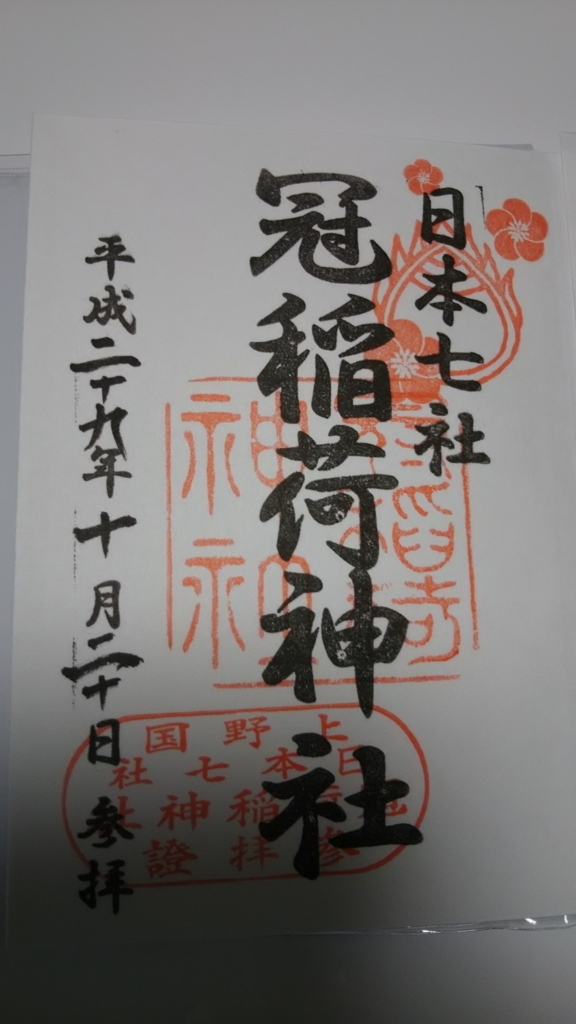 日本七社
冠稲荷神社
平成二十九年十月二十日 参拝
上野国
日本七社
冠稲荷神社
参拝證